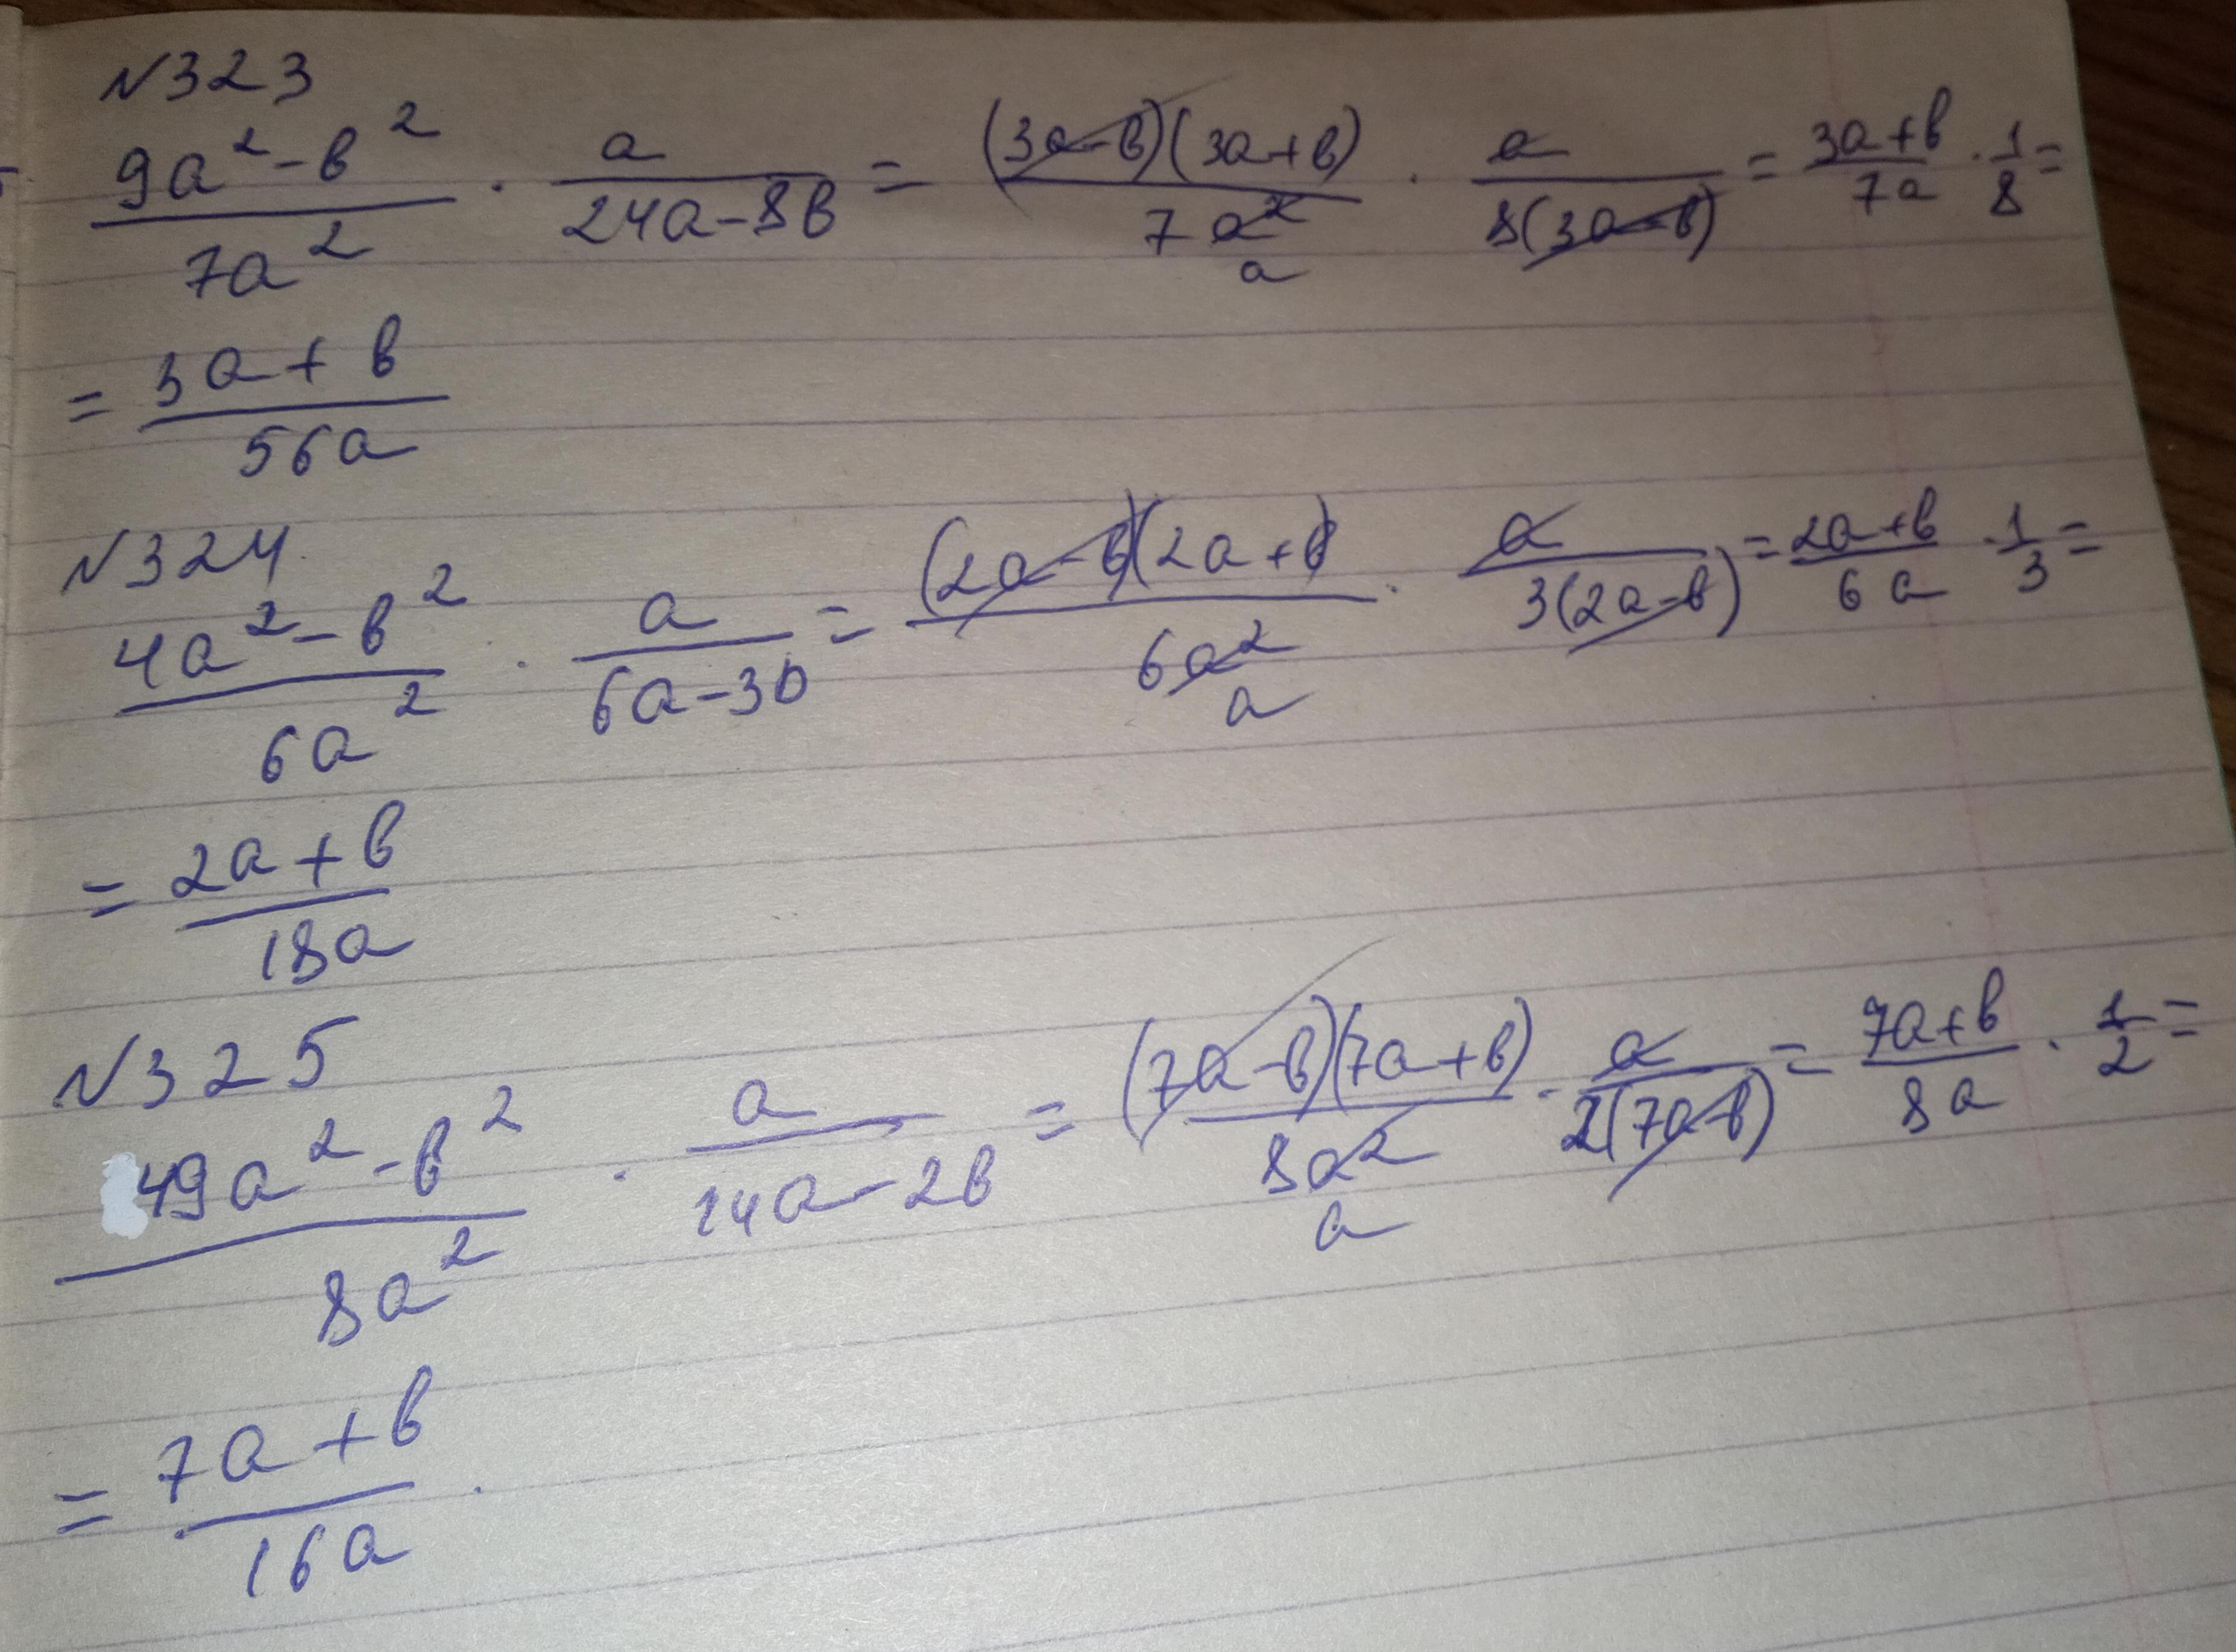 N323
(9a²-b²)/(7a²) · a/(24a-8b) = ((3a-b)(3a+b))/(7a² a) · a/(8(3a-b)) = (3a+b)/(7a) · 1/8 =
= (3a+b)/(56a)
N324.
(4a²-b²)/(6a²) · a/(6a-3b) = ((2a-b)(2a+b))/(6a² a) · a/(3(2a-b)) = (2a+b)/(6a) · 1/3 =
= (2a+b)/(18a)
N325
(49a²-b²)/(8a²) · a/(14a-2b) = ((7a-b)(7a+b))/(8a² a) · a/(2(7a-b)) = (7a+b)/(8a) · 1/2 =
= (7a+b)/(16a).